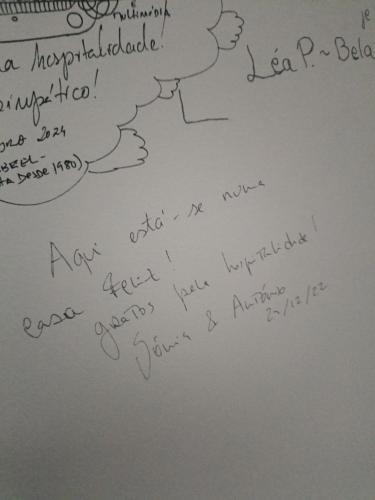 MULTIMÉDIA
a hospitalidade!
simpático!
2024
DESDE 1980)
Léa P. ~ Bela
Aqui está-se numa
casa feliz!
gratos pela hospitalidade!
Sónia & António
27/12/22